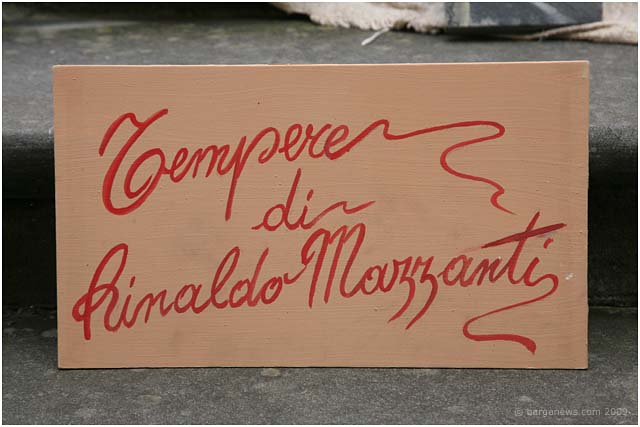 Tempere
di
Rinaldo Mazzanti
© barganews.com 2009